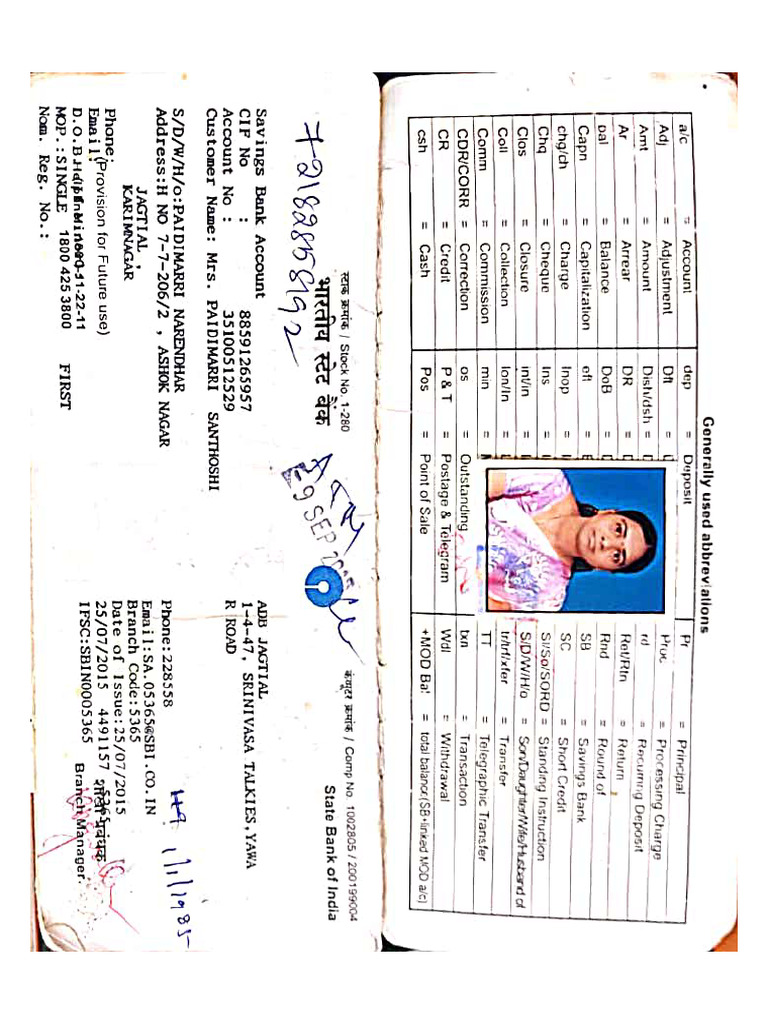 Generally used abbreviations
a/c = Account dep = Deposit Pr = Principal
Adj = Adjustment Dft = Proc = Processing Charge
Amt = Amount Dish/dsh = rd = Recurring Deposit
Ar = Arrear DR = Ret/Rtn = Return
Bal = Balance DoB = Rnd = Round of
Capn = Capitalization eft = SB = Savings Bank
chg/ch = Charge Inop = SC = Short Credit
Chq = Cheque Ins = SI/So/SORD = Standing Instruction
Clos = Closure int/in = S/D/W/H/o = Son/Daughter/Wife/Husband of
Coll = Collection lon/ln = trf/trf/xfer = Transfer
Comm = Commission min = TT = Telegraphic Transfer
CDR/CORR = Correction os = Outstanding txn = Transaction
CR = Credit P & T = Postage & Telegram Wdl = Withdrawal
csh = Cash Pos = Point of Sale +MOD Bal = total balance(SB+linked MOD a/c)
स्टाक क्रमांक / Stock No. 1-280
कंप्यूटर क्रमांक / Comp No. 1002805 / 200199004
भारतीय स्टेट बैंक
State Bank of India
7218285892
9 SEP
Savings Bank Account
CIF No : 88591265957
Account No : 35100512529
Customer Name: Mrs. PAIDIMARRI SANTHOSHI
S/D/W/H/o:PAIDIMARRI NARENDHAR
Address:H NO 7-7-206/2 , ASHOK NAGAR
JAGTIAL ,
KARIMNAGAR
Phone:
Email:(Provision for Future use)
D.O.B.
MOP.:SINGLE 1800 425 3800 FIRST
Nom. Reg. No.:
ADB JAGTIAL
1-4-47, SRINIVASA TALKIES,YAWA
R ROAD
Phone:228558
Email:SA.05365@SBI.CO.IN
Branch Code:5365
Date of Issue:25/07/2015
25/07/2015 4491157 5365
IFSC:SBIN0005365
शाखा प्रबंधक
Branch Manager.
1/1/1985